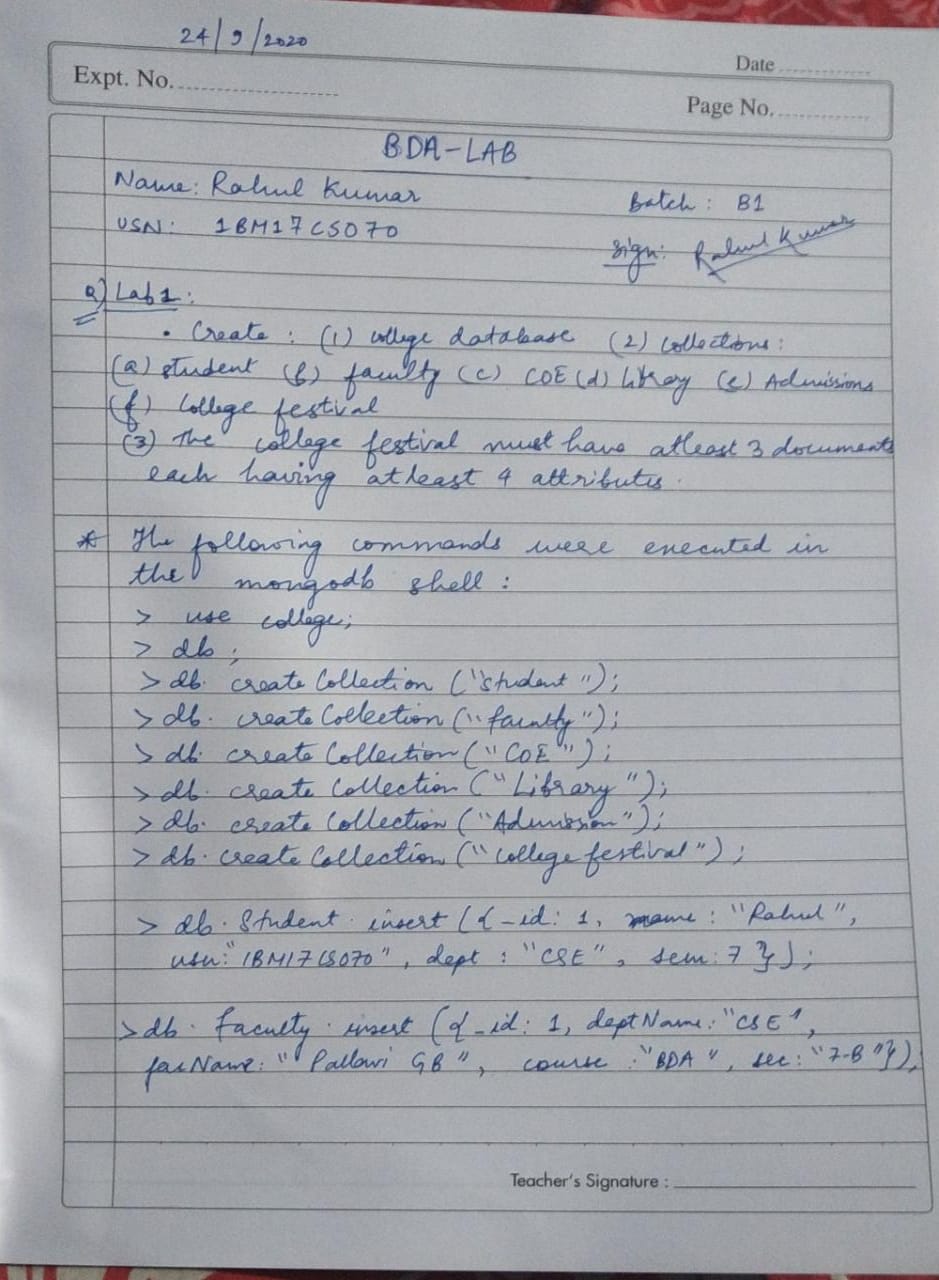 24/9/2020
Date
Expt. No.
Page No.
BDA-LAB
Name: Rahul Kumar
Batch : B1
USN: 1BM17CS070
Sign: Rahul Kumar
Q) Lab 1:
• Create : (1) college database (2) collections:
(a) student (b) faculty (c) COE (d) library (e) Admissions
(f) College festival
(3) The college festival must have atleast 3 documents
each having atleast 4 attributes.
* The following commands were executed in
the mongodb shell :
> use college;
> db ;
> db. create Collection ("student");
> db. create Collection ("faculty");
> db. create Collection ("COE");
> db. create Collection ("Library");
> db. create Collection ("Admission");
> db. create Collection ("college festival");
> db. Student. insert ({_id: 1, name : "Rahul",
usn: "1BM17CS070", dept : "CSE", sem: 7 });
> db. Faculty. insert ({_id: 1, deptName: "CSE",
facName: "Pallavi GB", course : "BDA", sec: "7-B"}),
Teacher's Signature :